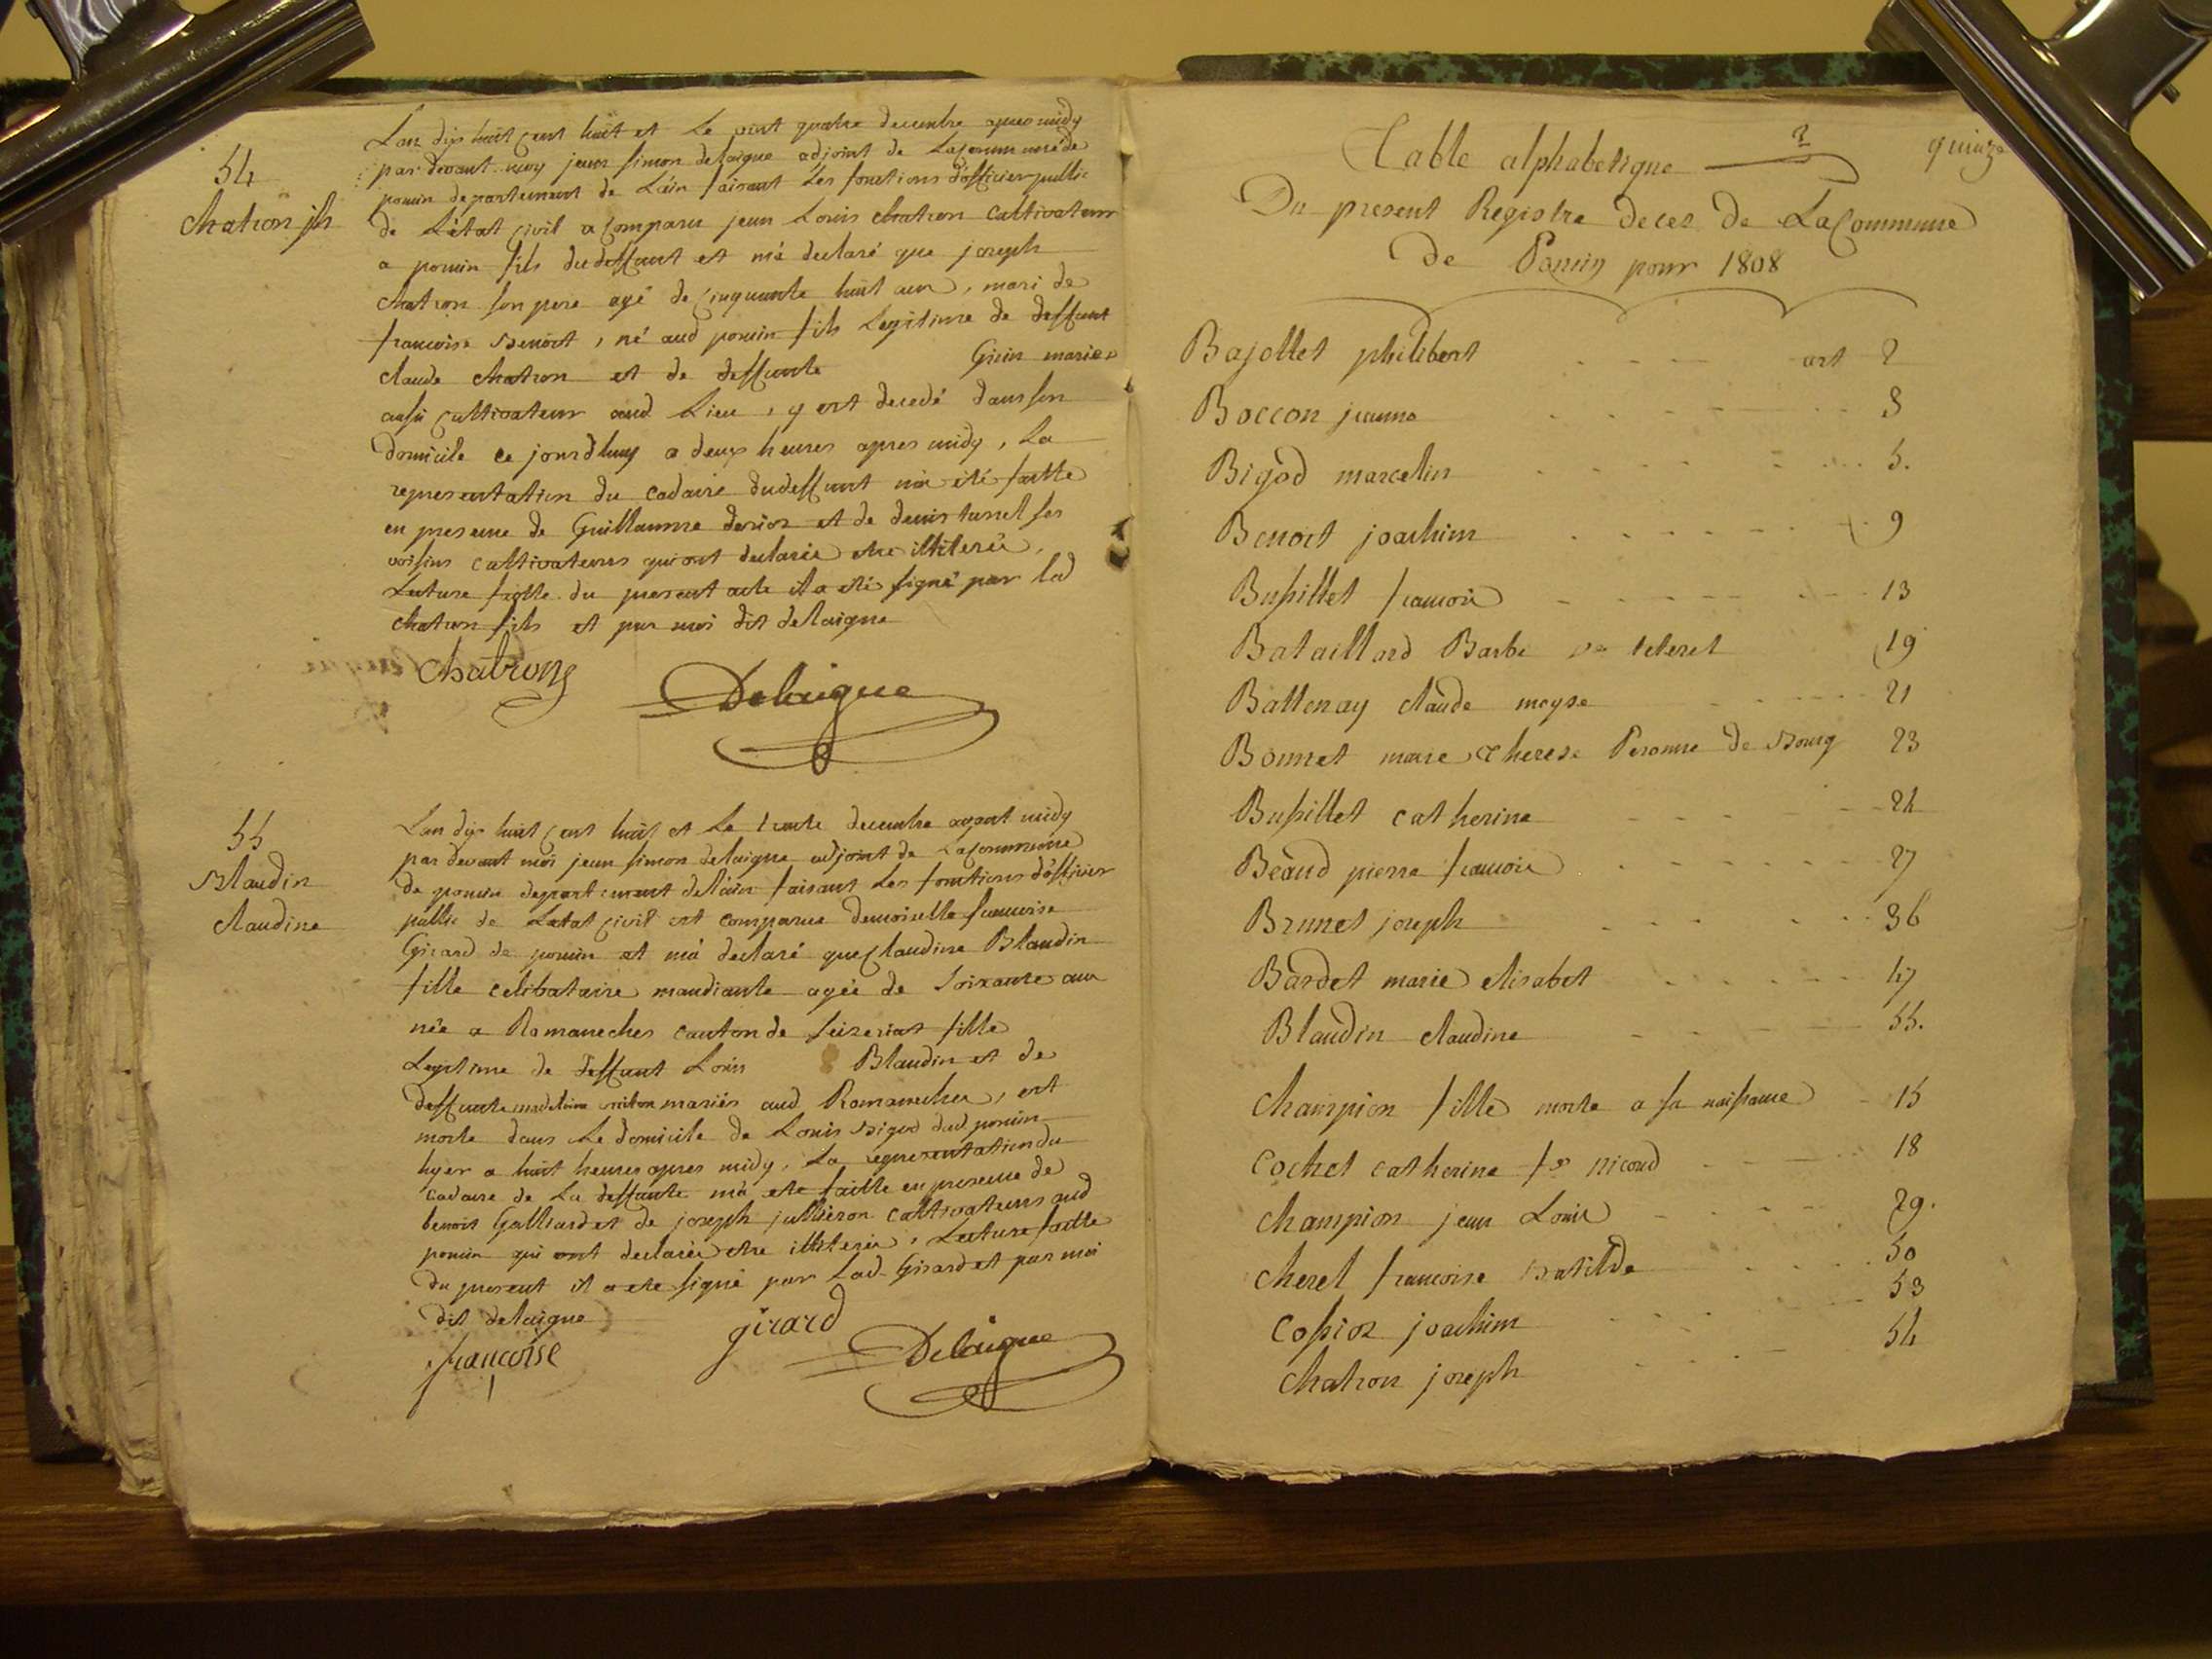 54
chatron jh
Lan dix huit cent huit et le vint quatre decembre apres midy
par devant moy jean simon delaigue adjoint de Lacommune de
poncin departement de Lain faisant les fonctions d'officier public
de Létat civil a comparu jean Louis chatron cultivateur
a poncin fils dudeffunt et m'a declaré que joseph
chatron son pere agé de cinquante huit ans, mari de
francoise Benoit, né aud poncin fils Legitime de deffunt
claude chatron et de deffunte Girin mariés
aussi cultivateur aud Lieu, y est decedé dans son
domicile ce jourdhuy a deux heures apres midy, La
representation du cadavre dudeffunt m'a été faitte
en presence de Guillaume derior et de denis turrel ses
voisins cultivateurs qui ont declarés etre illiterés,
Lecture faitte du present acte il a eté signé par led
chatron fils et par moi dit delaigue
chatron
Delaigue
55
Blaudin
claudine
Lan dix huit cent huit et Le trente decembre avant midy
par devant moi jean simon delaigue adjoint de Lacommune
de poncin departement de lain faisant Les fonctions d'officier
public de Letat civil est comparue demoiselle francoise
Girard de poncin et m'a declaré que claudine Blaudin
fille celibataire mandiante agée de soixante ans
née a Romaneches canton de seizeriat fille
Legitime de deffunt Louis Blaudin et de
deffunte madelaine mariés aud Romaneches, est
morte dans Le domicile de Louis Bigod dud poncin
hyer a huit heures apres midy, La representation du
cadavre de La deffunte m'a ete faitte en presence de
benoit Galliard et de joseph jullieron cultivateurs aud
poncin qui ont declarés etre illiterés, Lecture faitte
du present il a ete signé par Lad Girard et par moi
dit delaigue
francoise girard
Delaigue
quinze
Table alphabetique
Du present Registre deces de LaCommune
de Poncin pour 1808
Bajollet philibert art 2
Boccon jeanne 3
Bigod marcelin 5.
Benoit joachim 9
Bussillet francois 13
Bataillard Barbe ve teteret 19
Battenay claude moyse 21
Bonnet marie therese Peronne de Bourg 23
Bussillet catherine 24
Beaud pierre francois 27
Brunet joseph 36
Bardet marie elisabet 47
Blaudin claudine 55.
champion fille morte a sa naissance 15
cochet catherine fe nicoud 18
champion jean Louis 29.
cherel francoise Batilde 50
cossior joachim 53
chatron joseph 54